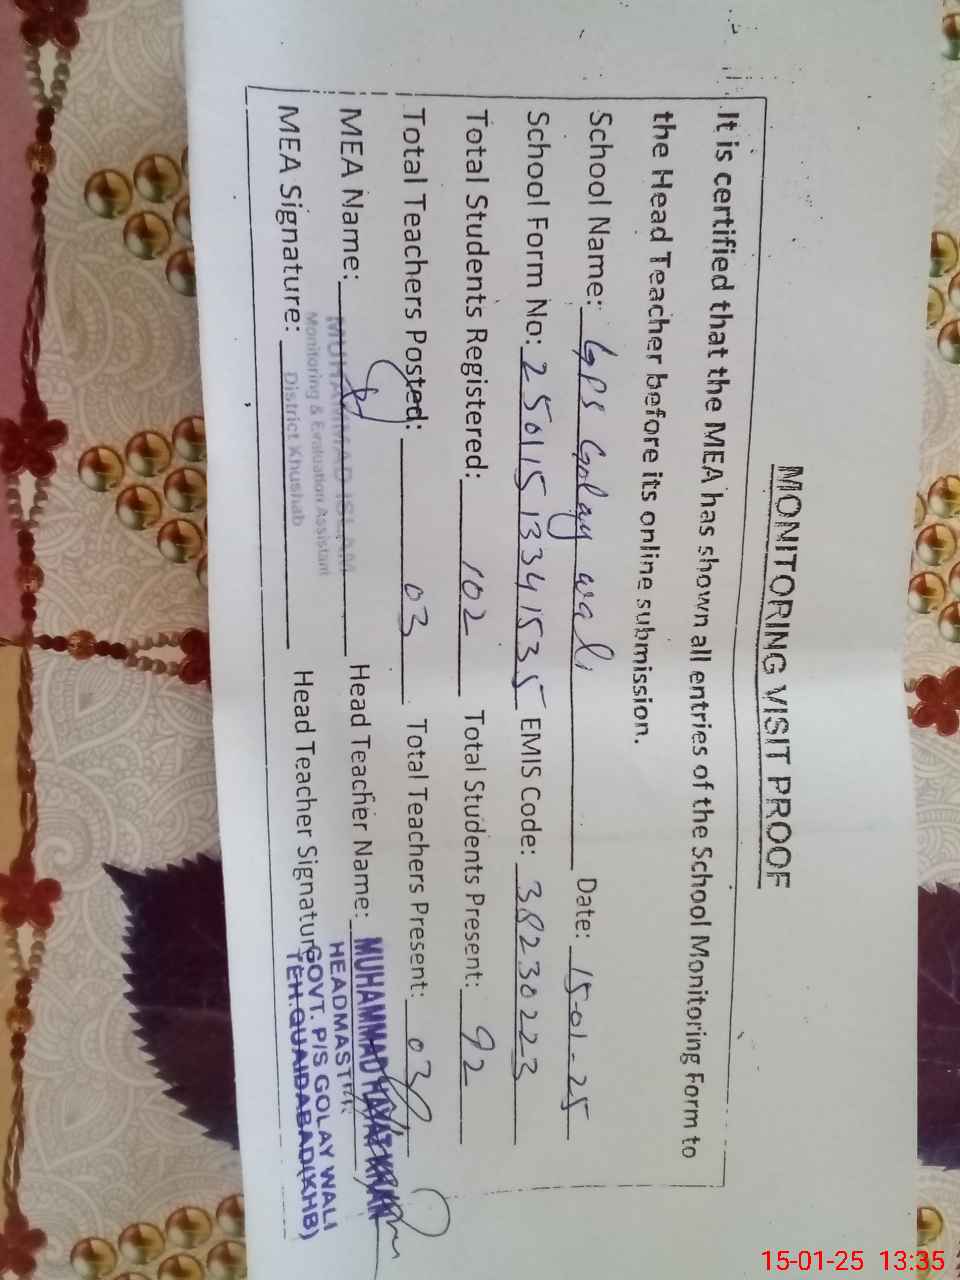 MONITORING VISIT PROOF
It is certified that the MEA has shown all entries of the School Monitoring Form to
the Head Teacher before its online submission.
School Name: GPS Golay wali Date: 15-01-25
School Form No: 25011513341535 EMIS Code: 38230223
Total Students Registered: 102 Total Students Present: 92
Total Teachers Posted: 03 Total Teachers Present: 03
MEA Name: MUHAMMAD ISLAM Head Teacher Name: MUHAMMAD HAYAT KHAN
Monitoring & Evaluation Assistant HEADMASTER
MEA Signature: District Khushab Head Teacher Signature GOVT. P/S GOLAY WALI
TEH. QUAIDABAD (KHB)
15-01-25 13:35